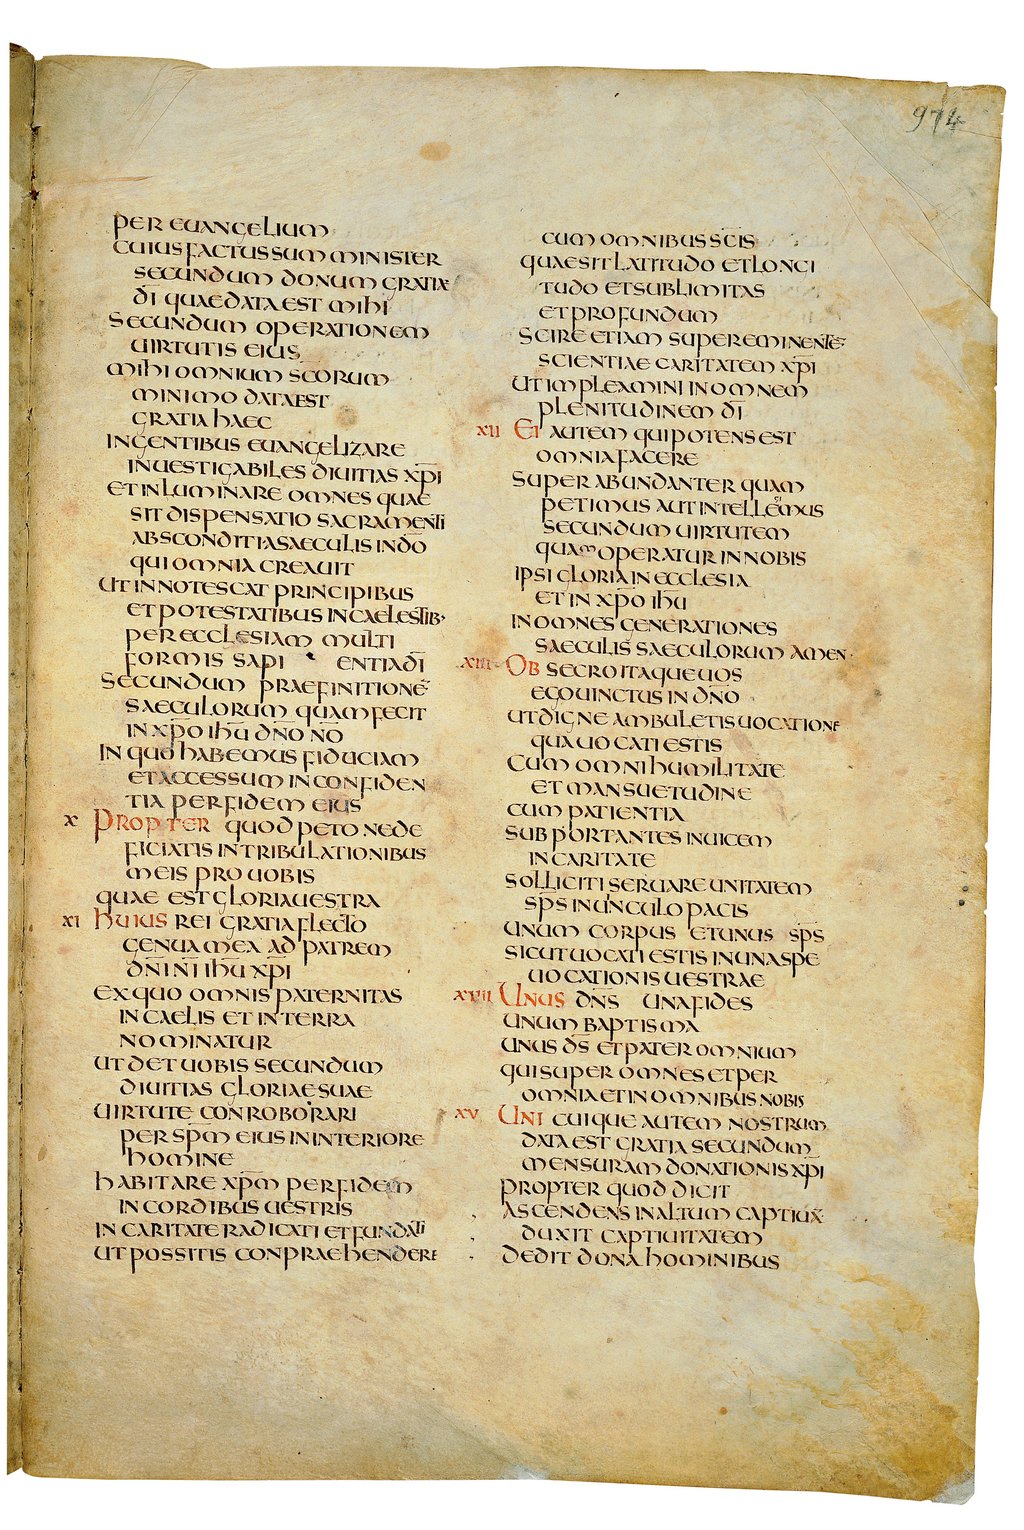 974
PER EUANGELIUM
CUIUS FACTUS SUM MINISTER
SECUNDUM DONUM GRATIAE
DĪ QUAE DATA EST MIHI
SECUNDUM OPERATIONEM
UIRTUTIS EIUS
MIHI OMNIUM SC̄ORUM
MINIMO DATA EST
GRATIA HAEC
IN GENTIBUS EUANGELIZARE
INUESTIGABILES DIUITIAS XP̄I
ET INLUMINARE OMNES QUAE
SIT DISPENSATIO SACRAMENTI
ABSCONDITI A SAECULIS IN DŌ
QUI OMNIA CREAUIT
UT INNOTESCAT PRINCIPIBUS
ET POTESTATIBUS IN CAELESTIB·
PER ECCLESIAM MULTI
FORMIS SAPI ENTIA DĪ
SECUNDUM PRAEFINITIONĒ
SAECULORUM QUAM FECIT
IN XP̄O IHŪ DN̄O NO
IN QUO HABEMUS FIDUCIAM
ET ACCESSUM IN CONFIDEN
TIA PER FIDEM EIUS
X PROPTER QUOD PETO NE DE
FICIATIS IN TRIBULATIONIBUS
MEIS PRO UOBIS
QUAE EST GLORIA UESTRA
XI HUIUS REI GRATIA FLECTO
GENUA MEA AD PATREM
DN̄I N̄I IHŪ XP̄I
EX QUO OMNIS PATERNITAS
IN CAELIS ET IN TERRA
NOMINATUR
UT DET UOBIS SECUNDUM
DIUITIAS GLORIAE SUAE
UIRTUTE CONROBORARI
PER SP̄M EIUS IN INTERIORE
HOMINE
HABITARE XP̄M PER FIDEM
IN CORDIBUS UESTRIS
IN CARITATE RADICATI ET FUNDATI
UT POSSITIS CONPRAEHENDERE
CUM OMNIBUS SC̄IS
QUAE SIT LATITUDO ET LONGI
TUDO ET SUBLIMITAS
ET PROFUNDUM
SCIRE ETIAM SUPEREMINENTĒ
SCIENTIAE CARITATEM XP̄I
UT IMPLEAMINI IN OMNEM
PLENITUDINEM DĪ
XII EI AUTEM QUI POTENS EST
OMNIA FACERE
SUPER ABUNDANTER QUAM
PETIMUS AUT INTELLEGIMUS
SECUNDUM UIRTUTEM
QUAM OPERATUR IN NOBIS
IPSI GLORIA IN ECCLESIA
ET IN XP̄O IHŪ
IN OMNES GENERATIONES
SAECULIS SAECULORUM AMEN·
XIII OBSECRO ITAQUE UOS
EGO UINCTUS IN DN̄O
UT DIGNE AMBULETIS UOCATIONE
QUA UOCATI ESTIS
CUM OMNI HUMILITATE
ET MANSUETUDINE
CUM PATIENTIA
SUBPORTANTES INUICEM
IN CARITATE
SOLLICITI SERUARE UNITATEM
SP̄S IN UINCULO PACIS
UNUM CORPUS ET UNUS SP̄S
SICUT UOCATI ESTIS IN UNA SPE
UOCATIONIS UESTRAE
XVII UNUS DN̄S UNA FIDES
UNUM BAPTISMA
UNUS D̄S ET PATER OMNIUM
QUI SUPER OMNES ET PER
OMNIA ET IN OMNIBUS NOBIS
XV UNI CUIQUE AUTEM NOSTRUM
DATA EST GRATIA SECUNDUM
MENSURAM DONATIONIS XP̄I
PROPTER QUOD DICIT
ASCENDENS IN ALTUM CAPTIUĀ
DUXIT CAPTIUITATEM
DEDIT DONA HOMINIBUS